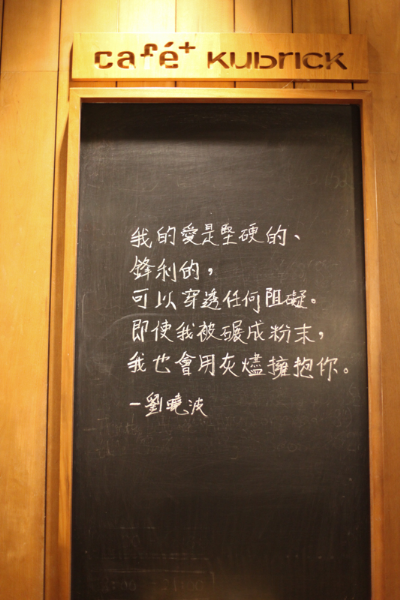 café+ KUBRICK
我的愛是堅硬的、
鋒利的，
可以穿透任何阻礙。
即使我被碾成粉末，
我也會用灰燼擁抱你。
－劉曉波